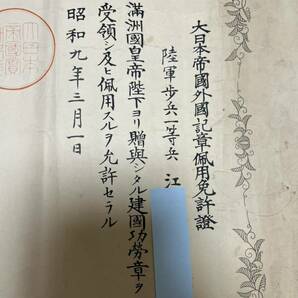 大日本帝國外國記章佩用免許證
陸軍步兵一等兵 江
滿洲國皇帝陛下ヨリ贈與シタル建國功勞章ヲ
受領シ及ヒ佩用スルヲ允許セラル
昭和九年三月一日